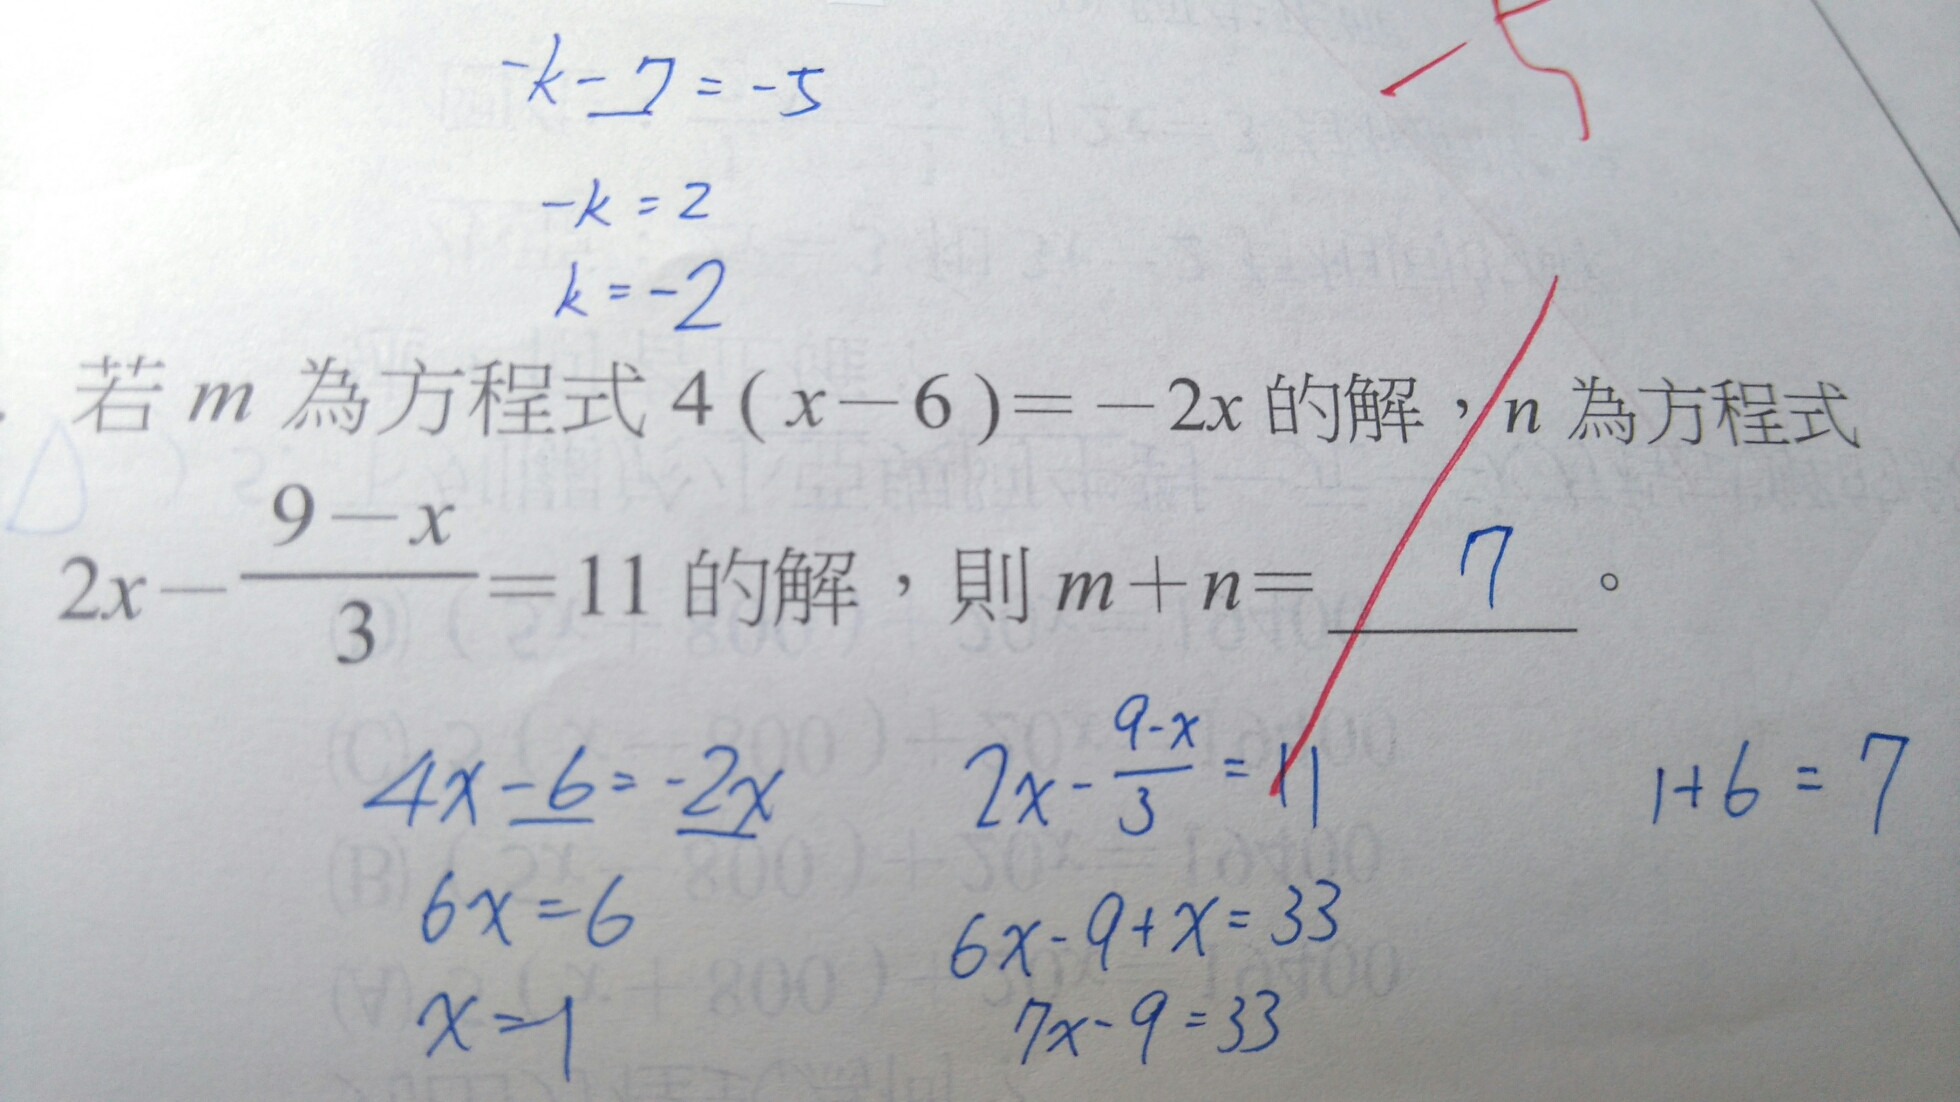 -k-7=-5
-k=2
k=-2
若 m 為方程式 4(x-6)=-2x 的解，n 為方程式
2x-\frac{9-x}{3}=11 的解，則 m+n= 7 。
4x-6=-2x
6x=6
x=1
2x-\frac{9-x}{3}=11
6x-9+x=33
7x-9=33
1+6=7